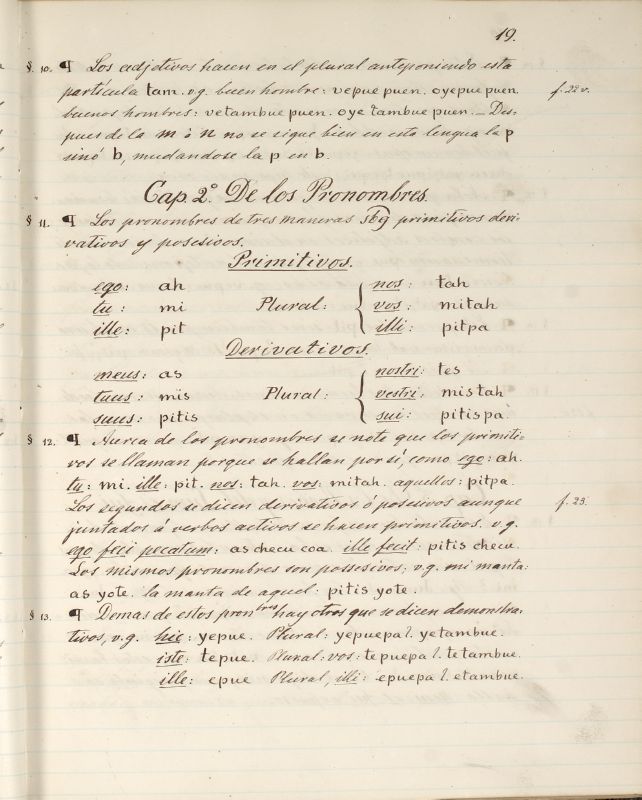 19.
§. 10. ¶ Los adjetivos hacen en el plural anteponiendo esta
partícula tam. v.g. buen hombre: vepue puen. oyepue puen. f. 22 v.
buenos hombres: vetambue puen. oye tambue puen. — Des-
pues de la m ò n no se sigue bien en esta lengua la p
sinó b, mudandose la p en b.
Cap. 2.º De los Pronombres.
§ 11. ¶ Los pronombres de tres maneras primitivos deri-
vativos y posesivos.
Primitivos.
ego: ah nos: tah
tu: mi Plural: vos: mitah
ille: pit illi: pitpa
Derivativos.
meus: as nostri: tes
tuus: mis Plural: vestri: mistah
suus: pitis sui: pitispa
§ 12. ¶ Acerca de los pronombres se note que los primiti-
vos se llaman porque se hallan por sí, como ego: ah.
tu: mi. ille: pit. nos: tah. vos: mitah. aquellos: pitpa.
Los segundos se dicen derivativos ó posesivos aunque f. 23.
juntados á verbos activos se hacen primitivos. v.g.
ego feci pecatum: as checu coa. ille fecit: pitis checu.
Los mismos pronombres son possesivos; v.g. mi manta:
as yote. la manta de aquel: pitis yote.
§ 13. ¶ Demas de estos pronbres hay otros que se dicen demonstra-
tivos, v.g. hic: yepue. Plural: yepuepal. yetambue.
iste: tepue. Plural: vos: tepuepal. tetambue.
ille: epue Plural, illi: epuepal. etambue.